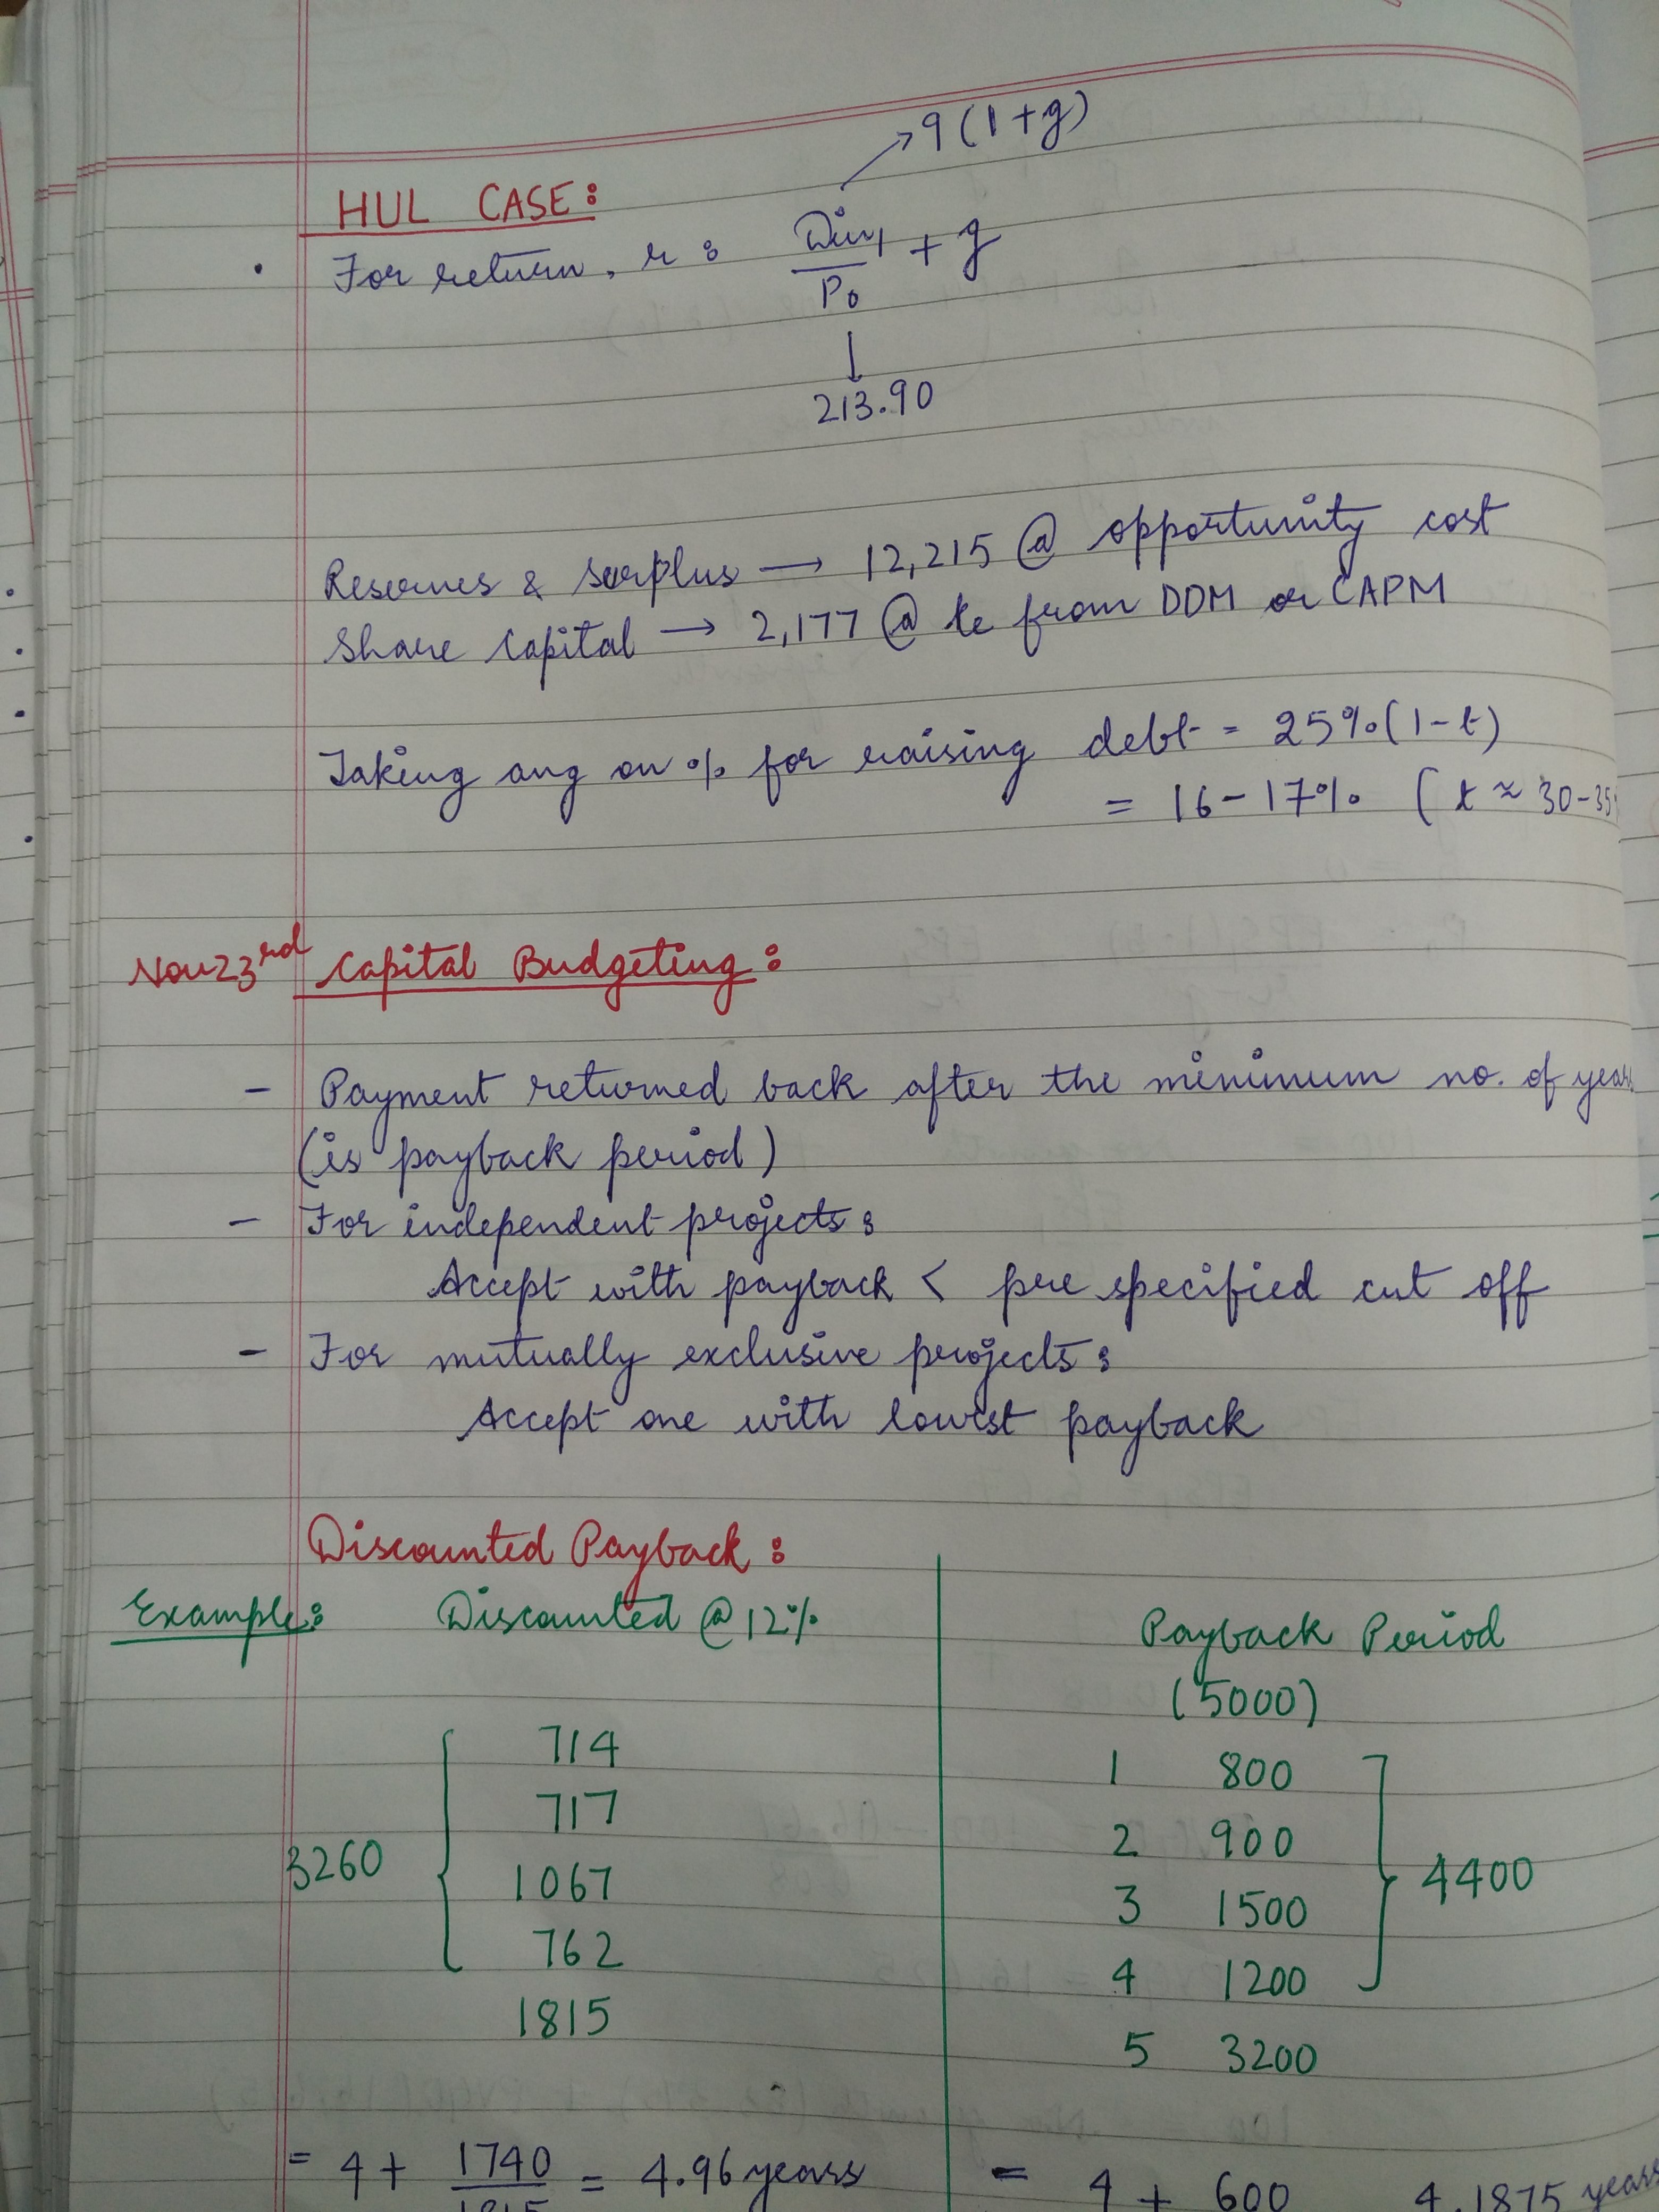 9(1+g)
HUL CASE:
• For return, r : Div1/P0 + g
213.90
Reserves & surplus → 12,215 @ opportunity cost
Share Capital → 2,177 @ ke from DDM or CAPM
Taking avg on % for raising debt = 25%(1-t)
= 16-17% (t ≈ 30-35
Nov 23rd Capital Budgeting:
- Payment returned back after the minimum no. of years
(is payback period)
- For independent projects:
Accept with payback < pre specified cut off
- For mutually exclusive projects:
Accept one with lowest payback
Discounted Payback:
Example: Discounted @ 12% Payback Period
(5000)
714 1 800
717 2 900
3260 1067 3 1500 4400
762 4 1200
1815 5 3200
= 4 + 1740/1815 = 4.96 years = 4 + 600 4.1875 years